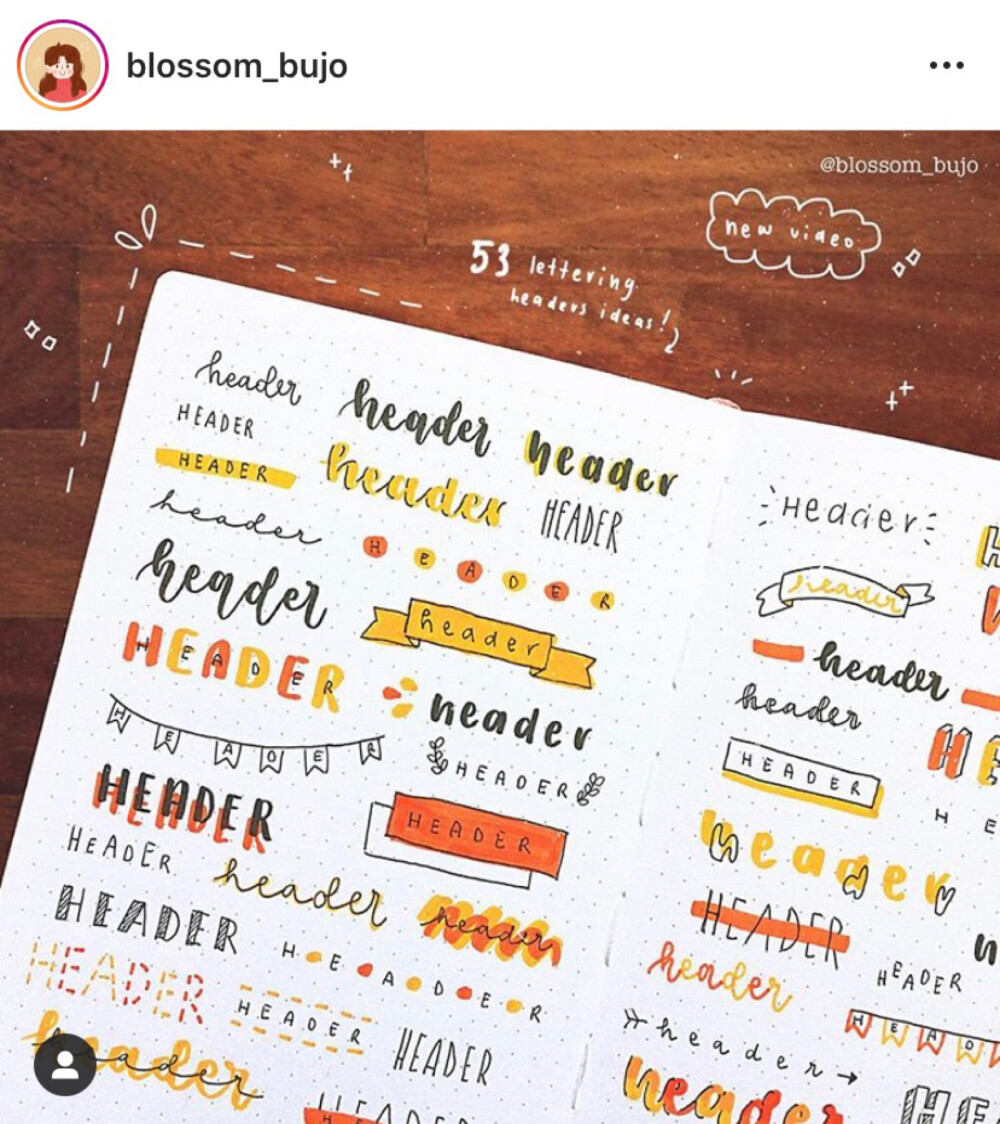 blossom_bujo
@blossom_bujo
new video
53 lettering
headers ideas!
header
header
header
HEADER
HEADER
header
HEADER
header
HEADER
header
header
HEADER
header
HEADER
HEADER
HEADER
HEADER
HEADER
header
header
HEADER
HEADER
HEADER
HEADER
HEADER
header
HEADER
Header
header
header
header
HEADER
header
HEADER
header
HEADER
header
header